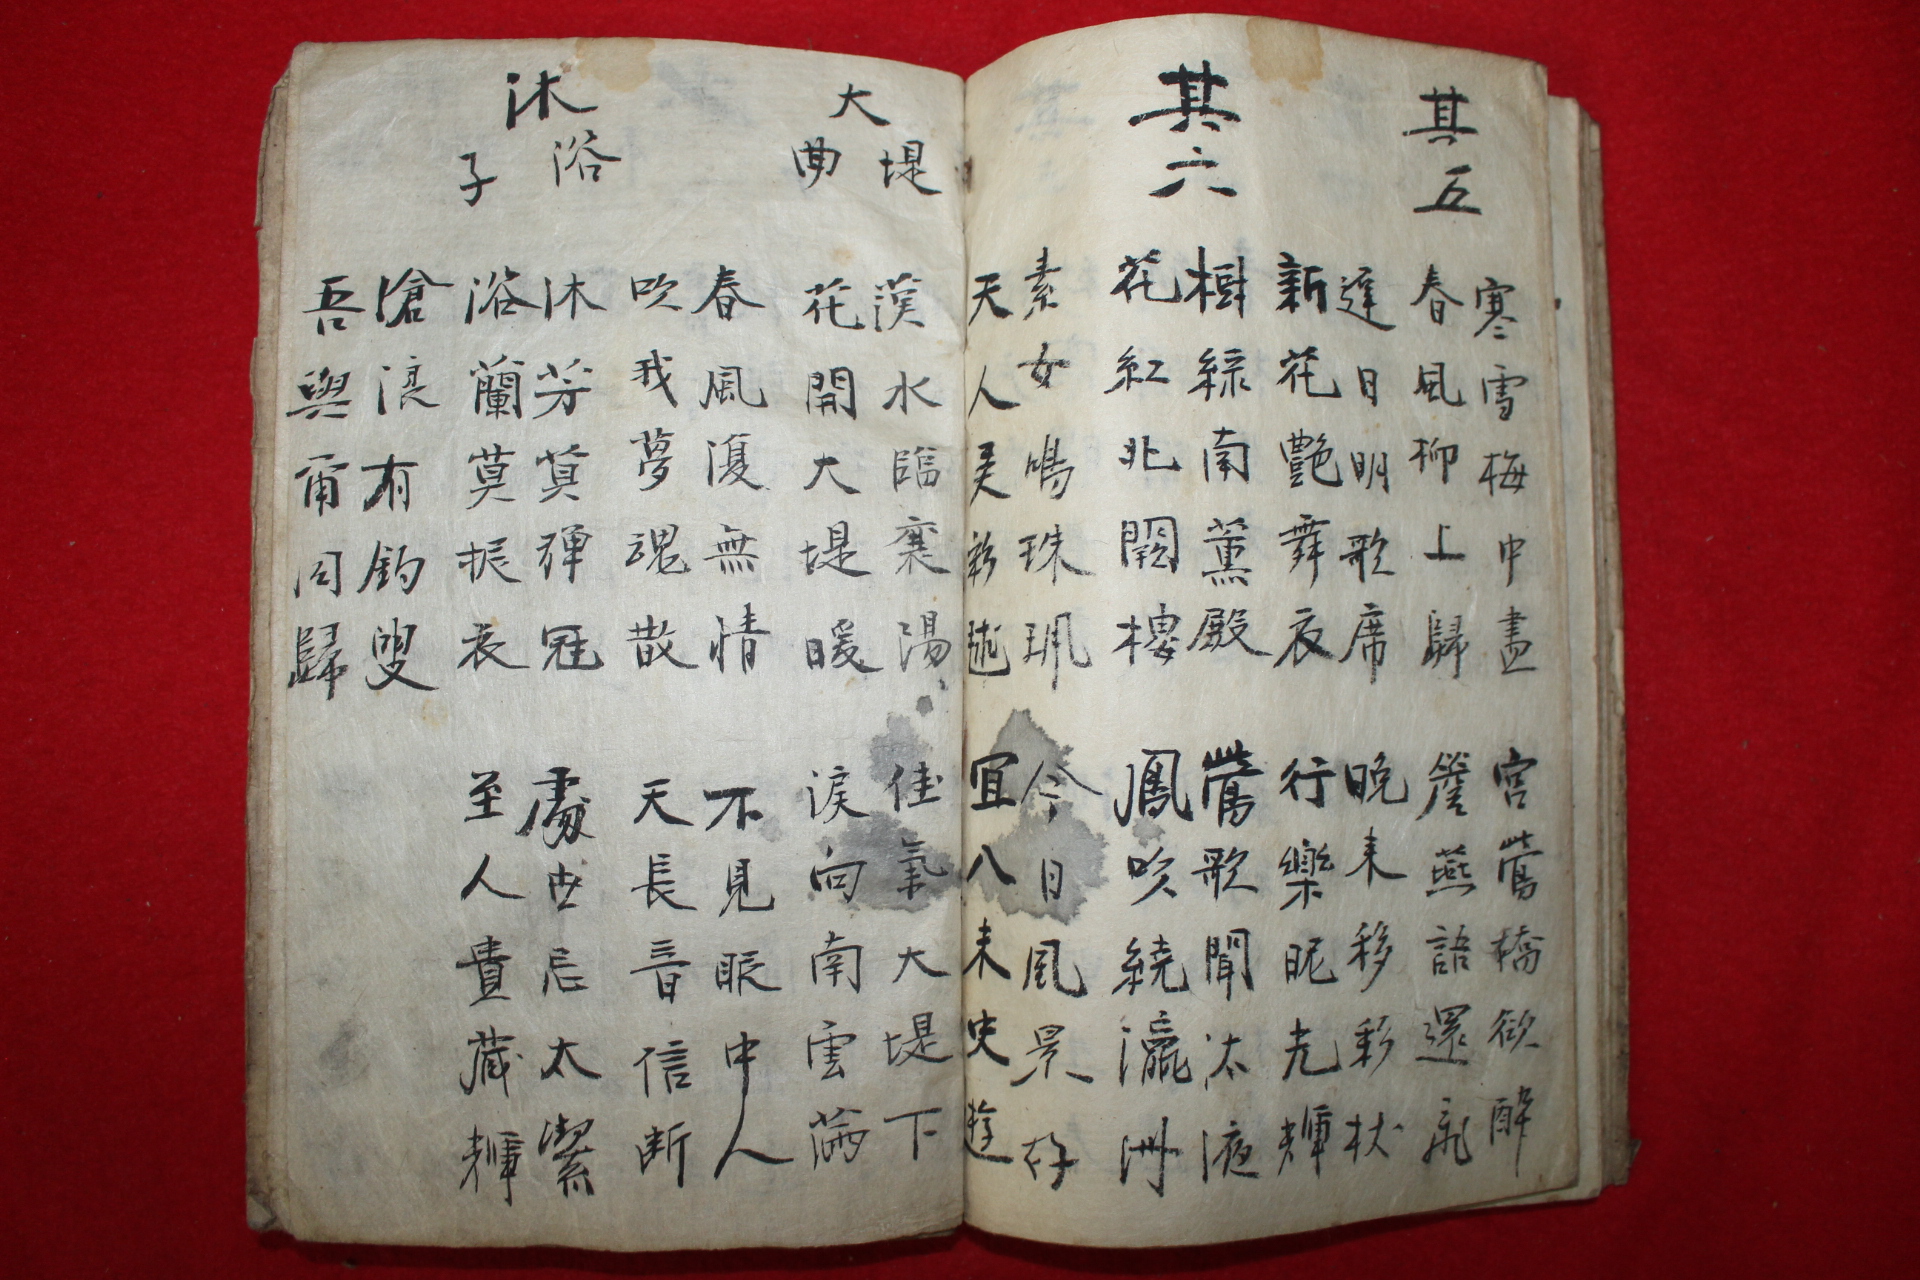 其五
寒雪梅中盡
春風柳上歸
宮鶯橋欲醉
簷燕語還飛
遲日明歌席
新花艷舞衣
晚來移彩杖
行樂昵光輝
其六
樹綠南薰殿
花紅北闕樓
鶯歌聞汰液
鳳吹繞瀛洲
素女鳴珠珮
天人弄彩毬
今日風景好
宜八未史遊
大堤曲
漢水臨襄陽
花開大堤暖
佳氣大堤下
淚向南雲滿
春風復無情
吹我夢魂散
不見眼中人
天長音信断
沐浴子
沐芳莫彈冠
浴蘭莫振衣
處世忌太潔
至人貴藏輝
滄浪有釣叟
吾與爾同歸